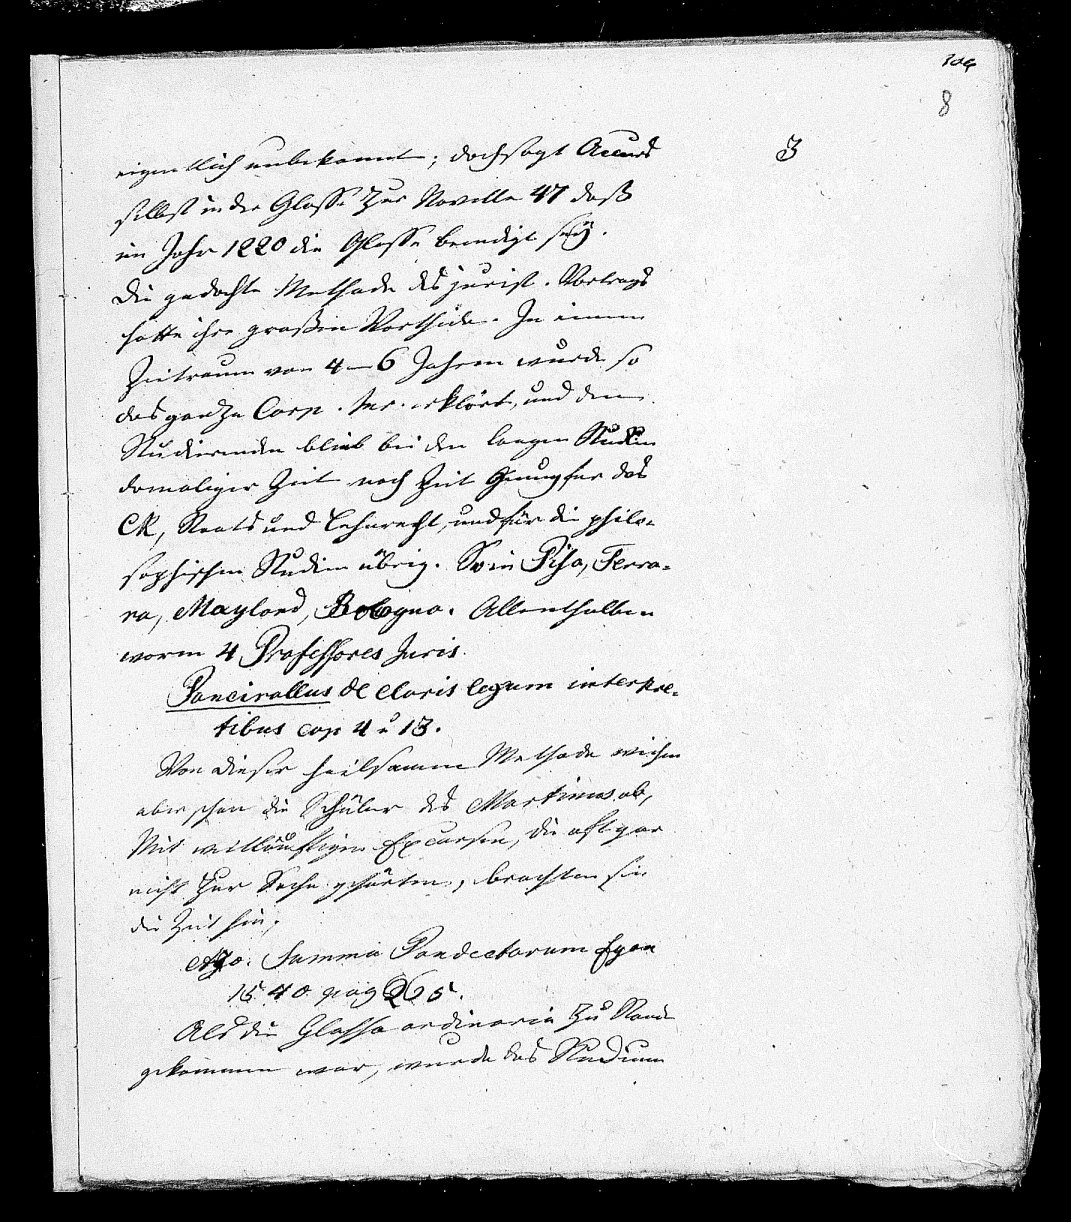 104
8
3
eigentlich unbekannt; doch sagt Accurs
selbst in der Glosse zur Novelle 47 daß
im Jahr 1220 die Glosse beendigt sey.
Die gedachte Methode des jurist. Vortrags
hatte ihre großen Vortheile. In einem
Zeitraum von 4–6 Jahren wurde so
das ganze Corp. Jur. erklärt, und den
Studierenden blieb bei den langen Studien
damaliger Zeit noch Zeit genug für das
CR, Staats und Lehnrecht, und für die philo-
sophischen Studien übrig. So in Pisa, Ferra-
ra, Mayland, Bologna. Allenthalben
waren 4 Professores Juris.
Pancirollus de claris legum interpre-
tibus cap 4 u 13.
Von dieser heilsamen Methode wichen
aber schon die Schüler des Martinus ab,
Mit weitläuftigen Excursen, die oft gar
nicht zur Sache gehörten, brachten sie
die Zeit hin;
Azo. Summa Pandectarum
1540 pag 265.
Als die Glossa ordinaria zu Stande
gekommen war, wurde das Studium